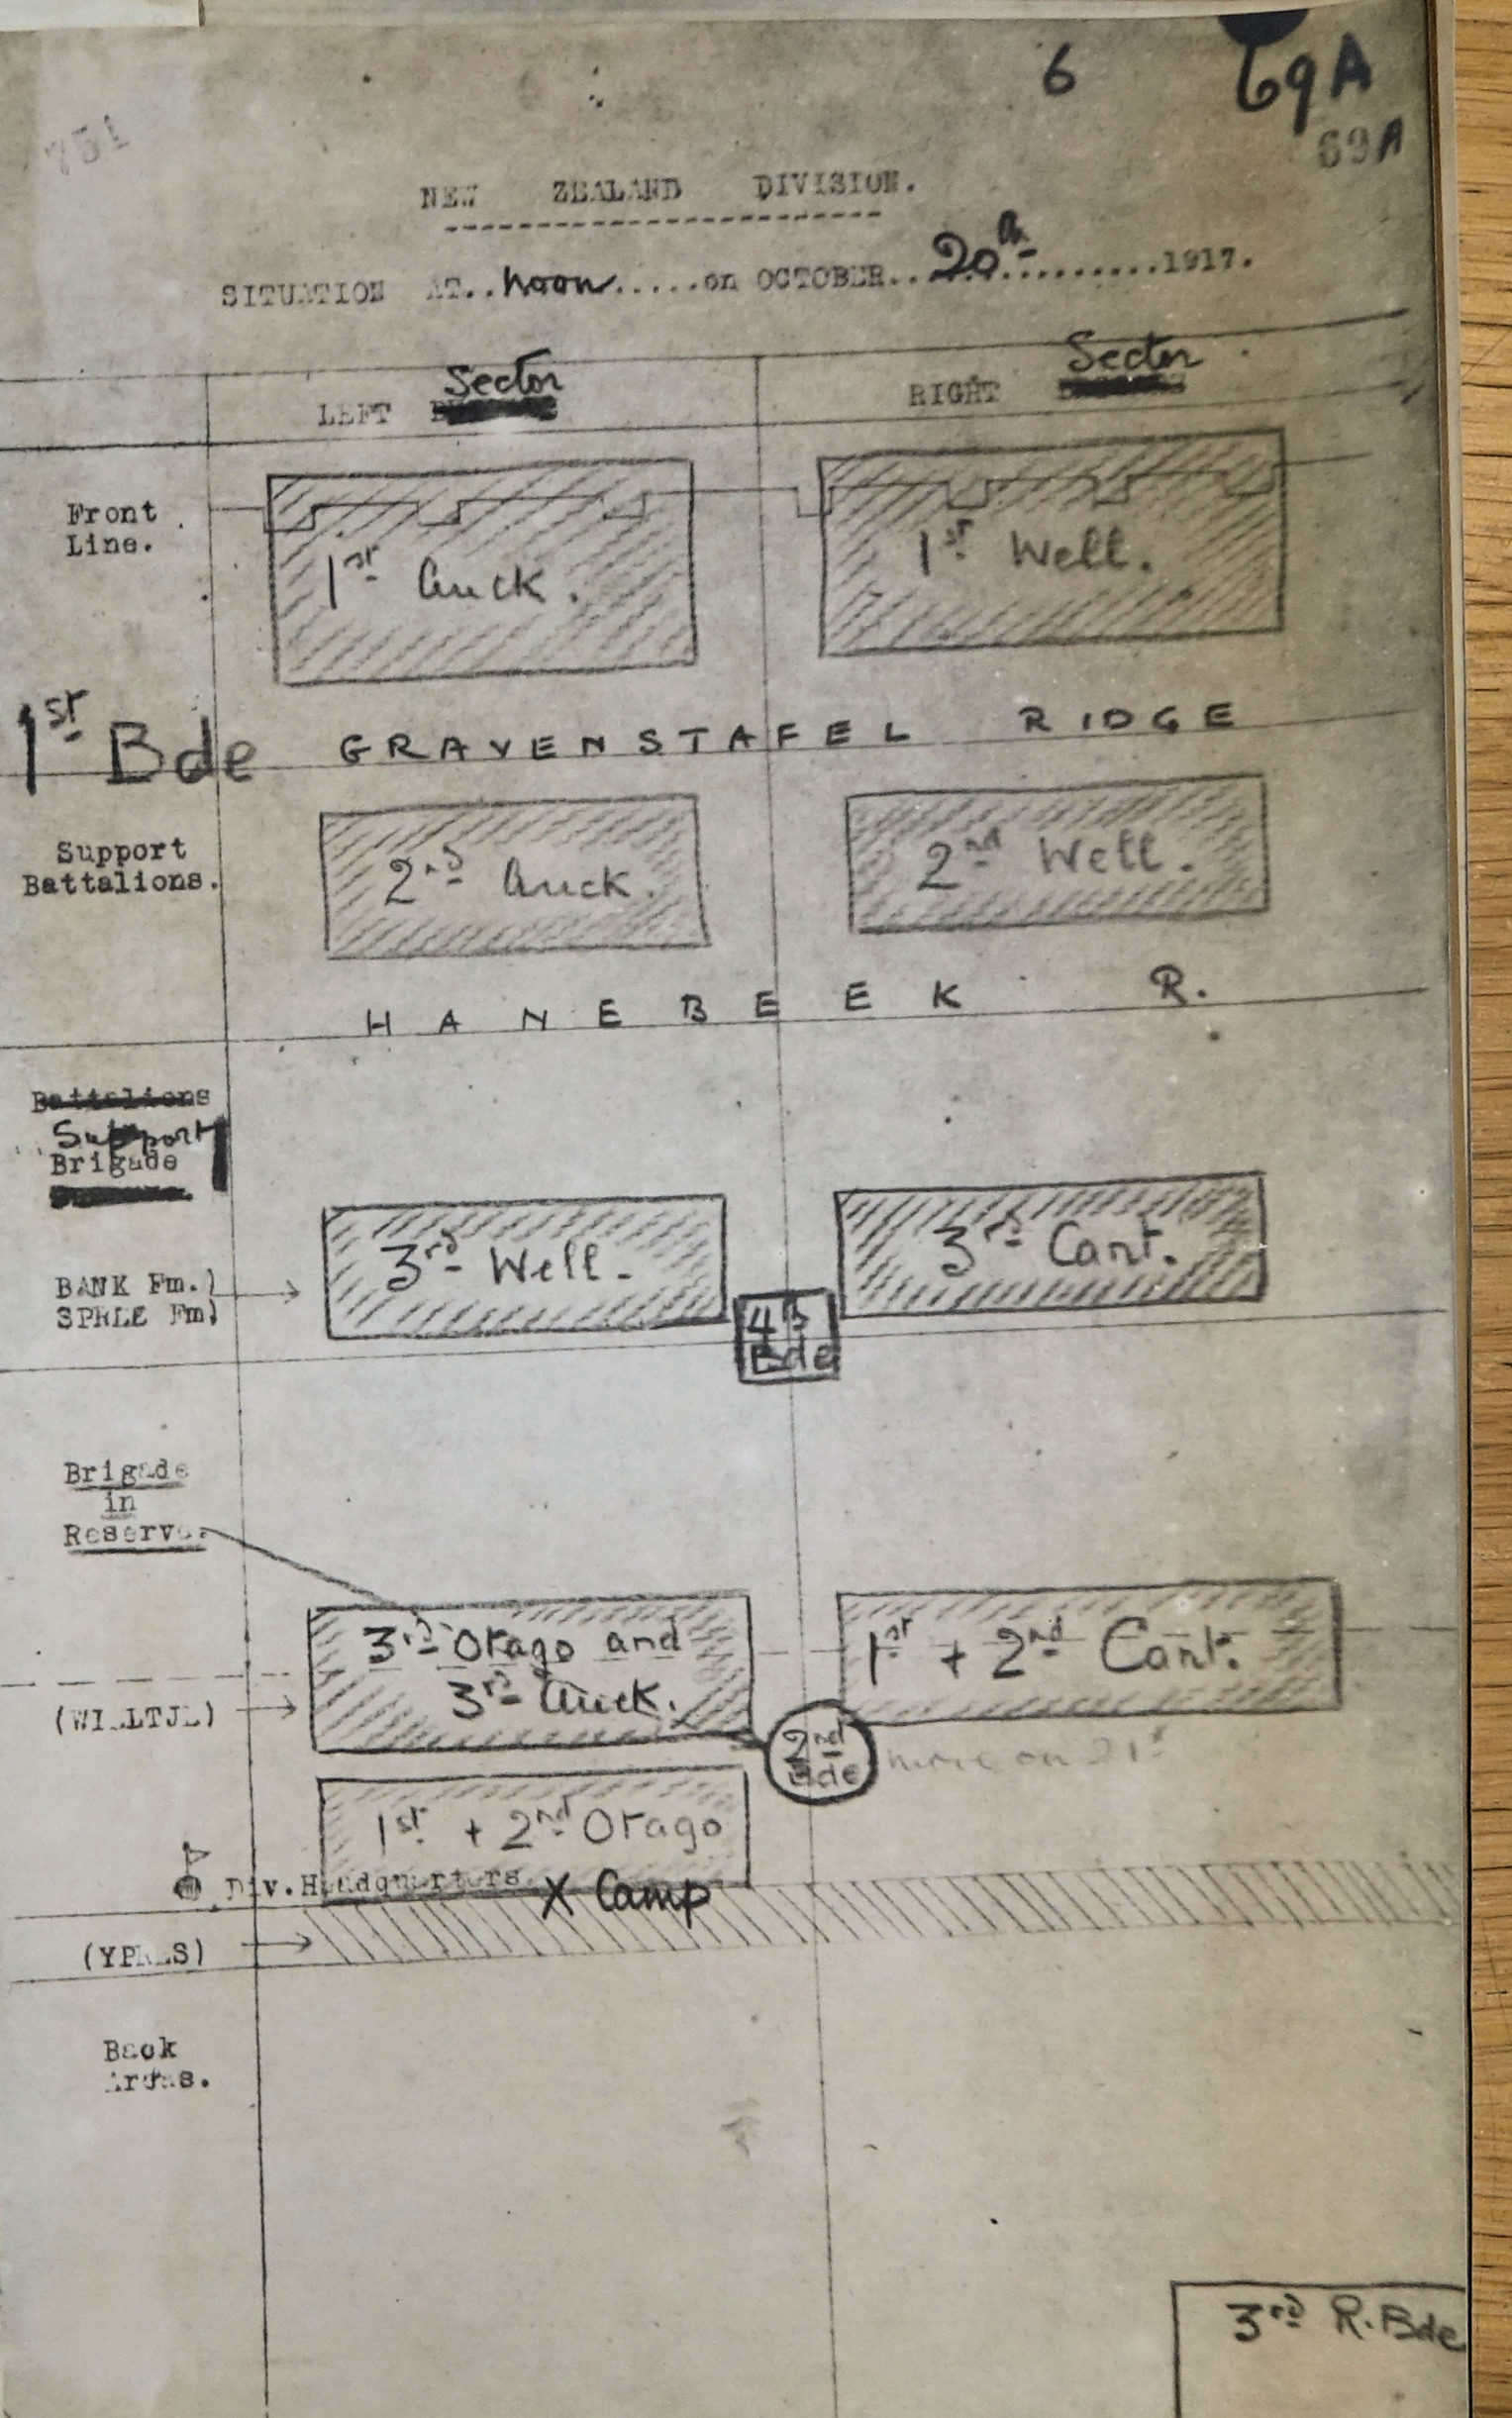 6
69A
69A
751
NEW ZEALAND DIVISION.
SITUATION AT..Noon.....on OCTOBER..20th..........1917.
LEFT Sector
RIGHT Sector
Front
Line.
1st Auck.
1st Well.
1st Bde
GRAVENSTAFEL RIDGE
Support
Battalions.
2nd Auck.
2nd Well.
HANEBEEK R.
Battalions
Support
Brigade
3rd Well.
3rd Cant.
BANK Fm.)
SPREE Fm)
4th
Bde
Brigade
in
Reserve.
3rd Otago and
3rd Auck.
1st + 2nd Cant.
(WIELTJE)
2nd
Bde
move on 21st
1st + 2nd Otago
Div. Headquarters X Camp
(YPRES)
Back
Areas.
3rd R. Bde